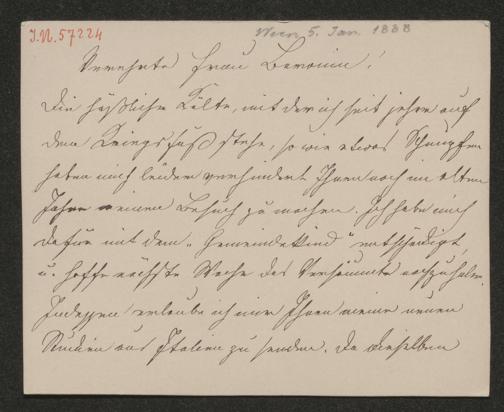 J.N. 57224
Wien 5. Jan. 1888
Verehrte Frau Baronin!
Die häßliche Kälte, mit der ich seit jeher auf
dem Kriegsfuß stehe, so wie etwas Schnupfen
haben mich leider verhindert Ihnen noch im alten
Jahre meinen Besuch zu machen. Ich habe mich
dafür mit dem „Gemeindekind" entschädigt,
u. hoffe nächste Woche das Versäumte nachzuholen.
Indessen erlaube ich mir Ihnen meine neuen
Studien aus Italien zu senden. Da dieselben